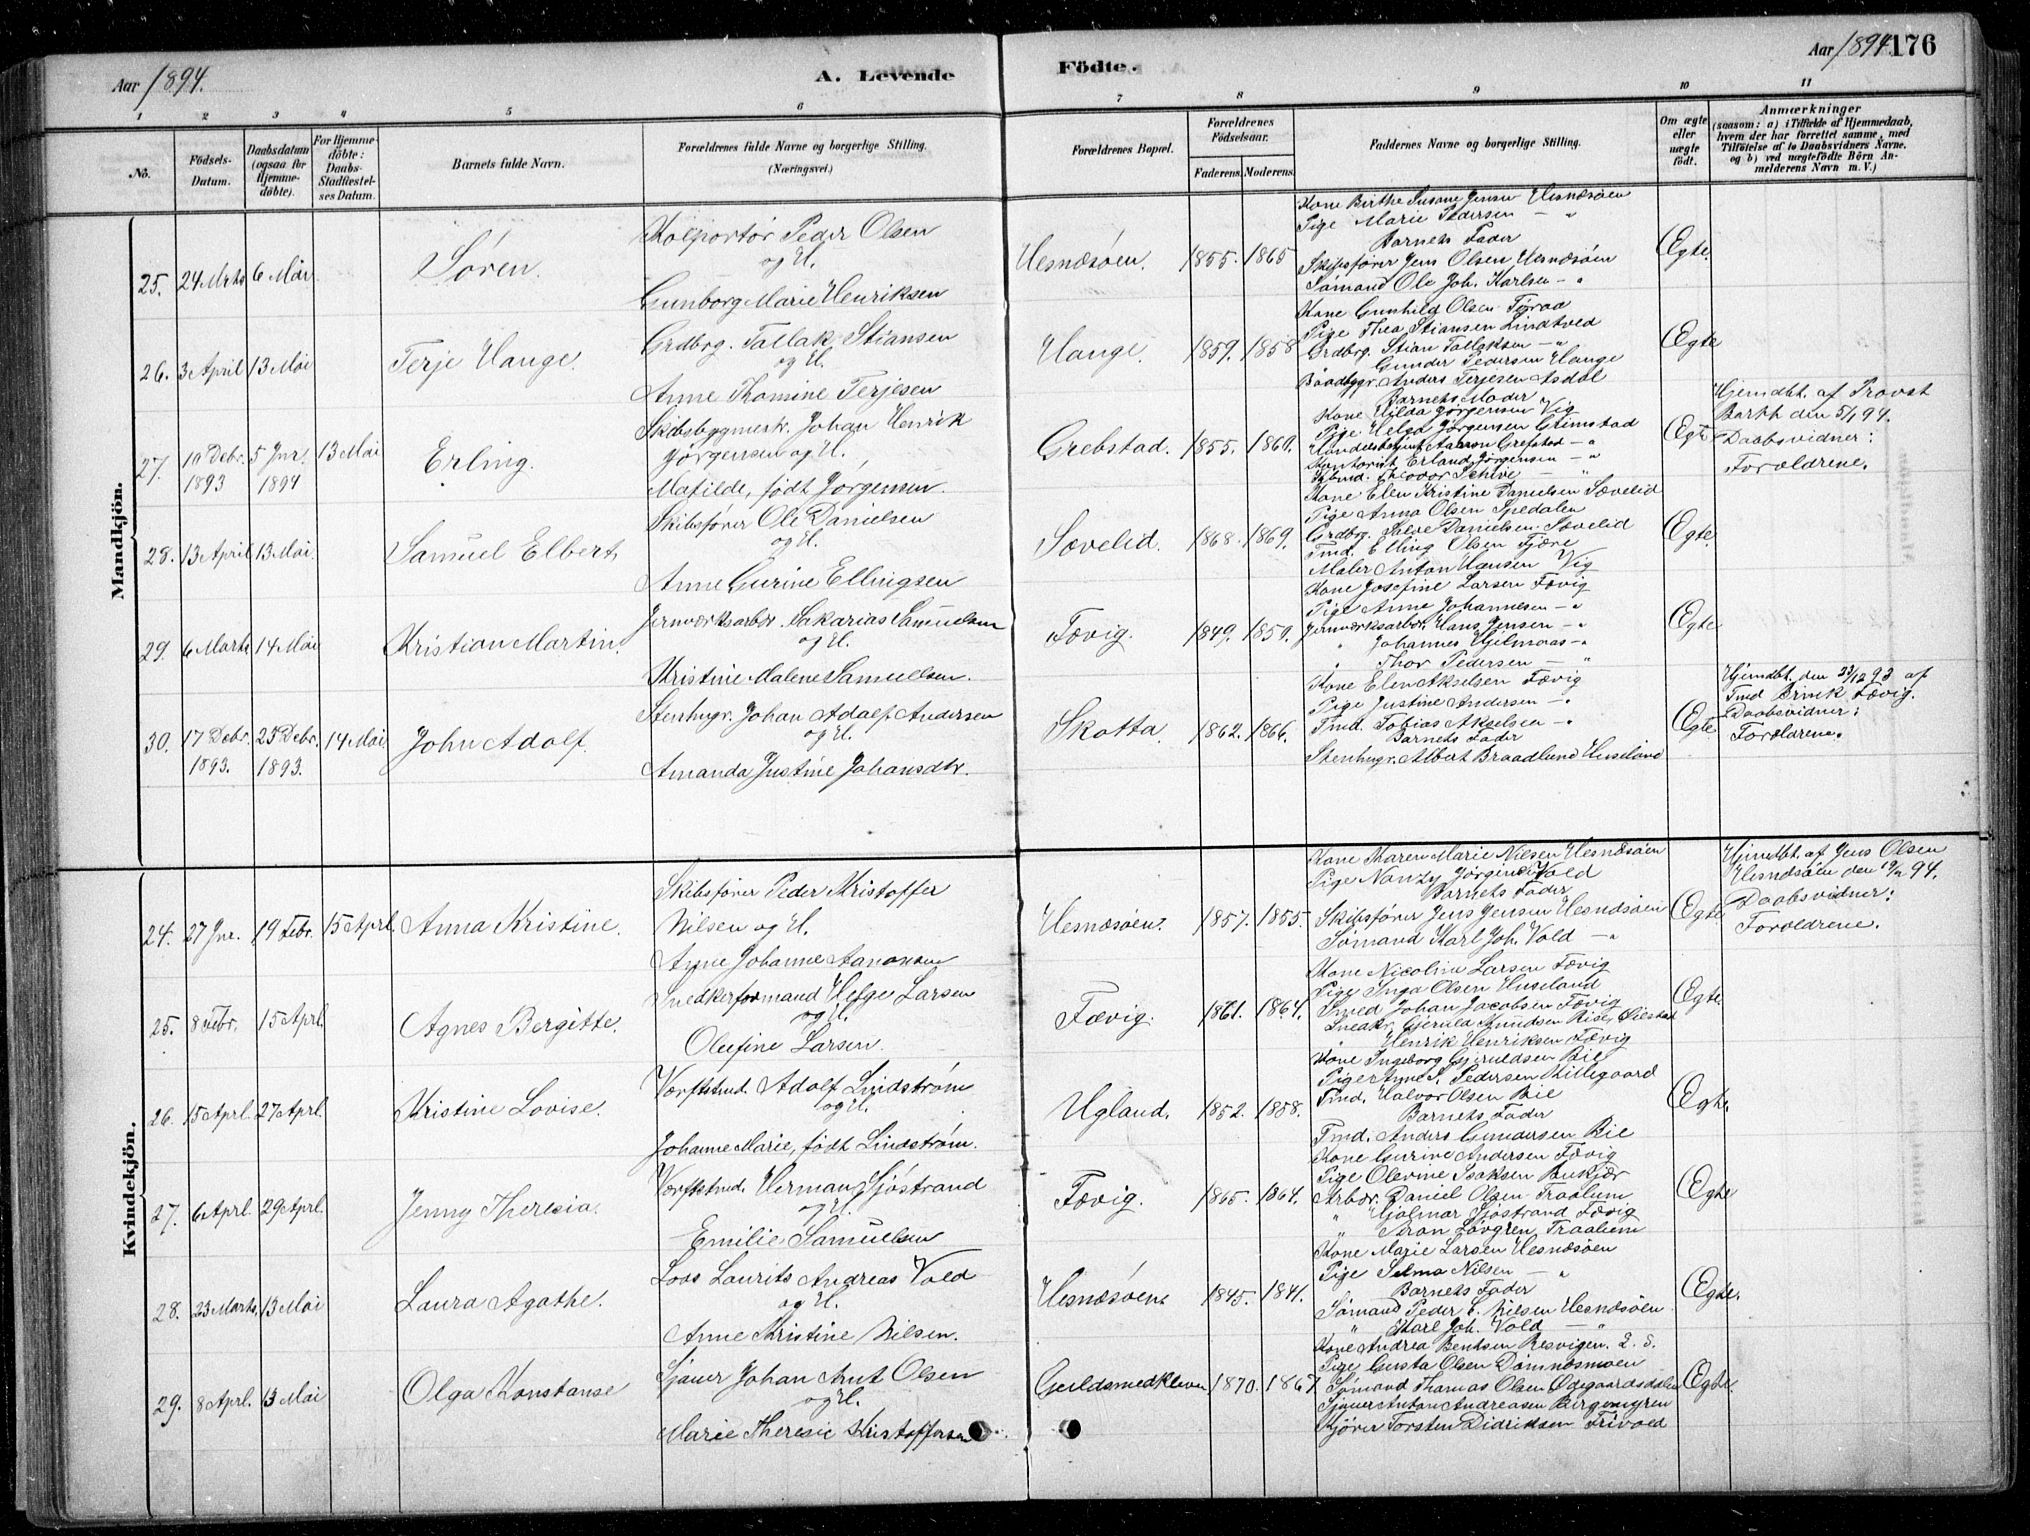 Aar 1894.
A. Levende
Födte.
Aar 1894. 176
1 2 3 4 5 6 7 8 9 10 11
No.
Födsels-Datum.
Daabsdatum (ogsaa for Hjemme-döbte).
For Hjemme-döbte: Daabs-Stadfæstel-ses Datum.
Barnets fulde Navn.
Forældrenes fulde Navne og borgerlige Stilling. (Næringsvei.)
Forældrenes Bopæl.
Forældrenes Födselsaar. Faderens. Moderens.
Faddernes Navne og borgerlige Stilling.
Om ægte eller uægte födt.
Anmærkninger (saasom: a) i Tilfælde af Hjemmedaab, hvem der har forrettet samme, med Tilföielse af to Daabsvidners Navne, og b) ved uægtefödte Börn An-melderens Navn m. V.)
Mandkjön.
25. 24 Mrts 6 Mai Søren.
Kolportør Peder Olsen
og H.
Gunborg Marie Henriksen
Hesnæsøen. 1855. 1865
Kone Birthe Susane Jensen Hesnæsøen
Pige Marie Pedersen — "
Barnets Fader
Skibsfører Jens Olsen Hesnæsøen
Sømand Ole Joh. Karlsen — "
Ægte.
26. 3 April 13 Mai Terje Hauge.
Grdbrg. Tallak Stiansen
og H.
Anne Thomine Terjesen
Hauge. 1859. 1858
Kone Gunhild Olsen
Pige Thea Stiansen Lindtved
Grdbrg. Stian Tallaksen — "
Gunder Pedersen Hauge
Baadbygr. Anders Terjesen Asdal
Barnets Moder
Ægte
27. 10 Debr. 1893 5 Jnr. 1894 13 Mai Erling.
Skibsbygmerk. Johan Henrik
Jørgensen og H.
Matilde, født Jørgensen.
Grebstad. 1855. 1860.
Kone Hilda Jørgensen Vig
Pige Helga Jørgensen Grimstad
Aanon Grefstad — "
Kontorist Erland Jørgensen — "
Theodor
Ægte
Hjemdbt. af Provst
Barth den 5/1 94.
Daabsvidner:
Forældrene.
28. 13 April 13 Mai. Samuel Elbert
Skibsfører Ole Danielsen
og H.
Anne Gurine Ellingsen
Sævelid. 1868. 1869.
Kone Elen Kristine Danielsen Sævelid
Pige Anna Olsen Spedalen
Grdbrg. Salve Danielsen Sævelid
Tmd. Elling Olsen Fjære
Maler Anton Hansen Vig
Ægte.
29. 6 Marts 14 Mai Kristian Martin.
Jernværksarbdr. Sakarias Samuelsen
og H.
Kristine Malene Samuelsen.
Fævig. 1849. 1859.
Kone Josefine Larsen Fævig
Pige Anne Johannesen — "
Jernværksarbdr. Hans Jensen — "
" Johannes Hjelmaas — "
" Thor Pedersen — "
Ægte
30. 17 Debr. 1893. 23 Debr. 1893. 14 Mai John Adolf
Stenhugr. Johan Adolf Andersen
og H.
Amanda Justine Johansdtr.
Skotta. 1862. 1866.
Kone Elen Akselsen Fævig
Pige Justine Andersen — "
Tmd. Tobias Akselsen — "
Barnets Fader
Stenhugr. Albert Braadlund Huseland
Ægte
Hjemdbt. den 23/12 93 af
Tmd Brink Fævig.
Daabsvidner:
Forældrene.
Kvindekjön.
24. 27 Jnr. 19 Febr. 15 Aprl. Anna Kristine.
Skibsfører Peder Kristoffer
Nilsen og H.
Anne Johanne Aanonsen
Hesnæsøen. 1857. 1855.
Kone Karen Marie Nilsen Hesnæsøen
Pige Nanzy Jørgine Vold
Barnets Fader
Skibsfører Jens Jensen Hesnæsøen
Sømand Karl Joh. Vold — "
Ægte
Hjemdbt. af Jens Olsen
Hesnæsøen den 19/2 94.
Daabsvidner:
Forældrene.
25. 8 Febr. 15 Aprl. Agnes Bergitte.
Snedkerformand Helge Larsen
og H.
Olufine Larsen.
Fævig. 1861. 1864.
Kone Nicoline Larsen Fævig
Pige Inga Olsen Huseland
Smed Johan Jacobsen Fævig
Snedkr. Gjeruld Knudsen Bise, Øiestad
" Henrik Henriksen Fævig
Ægte
26. 15 Aprl. 27 Aprl. Kristine Lovise.
Værftstmd. Adolf Lindstrøm
og H.
Johanne Marie, født Lindstrøm.
Ugland. 1852. 1858.
Kone Ingeborg Gjeruldsen Bie
Pige Anne S. Pedersen Killegaard
Tmd. Halvor Olsen Bie
Barnets Fader
Tmd. Anders Gundersen Bie
Ægte.
27. 6 Aprl. 29 Aprl. Jenny Theresia.
Værftstmd. Herman Sjøstrand
og H.
Emilie Samuelsen
Fævig. 1865. 1864.
Kone Gurine Andersen Fævig
Pige Olevine Isaksen Bukjær
Arbdr. Daniel Olsen Traalum
" Hjalmar Sjøstrand Fævig
" Aron Løvgren Traalum
Ægte
28. 23 Marts 13 Mai Laura Agathe.
Lods Laurits Andreas Vold
og H.
Anne Kristine Nilsen.
Hesnæsøen. 1845. 1841.
Kone Marie Larsen Hesnæsøen
Pige Selma Nilsen — "
Barnets Fader
Sømand Peder C. Nilsen Hesnæsøen
" Karl Joh. Vold — "
Ægte.
29. 8 Aprl. 13 Mai Olga Konstanse
Sjauer Johan Knut Olsen
og H.
Marie Theresie Kristoffersen
Guldsmedkleven 1870. 1867.
Kone Andrea Bentsen Resvigen. L. S.
Pige Gusta Olsen Dømnesmoen
Sømand Thomas Olsen Ødegaardsdalen
Sjauer Anton Andreasen Bergemyren
Kjører Torsten Didriksen Frivold
Ægte.